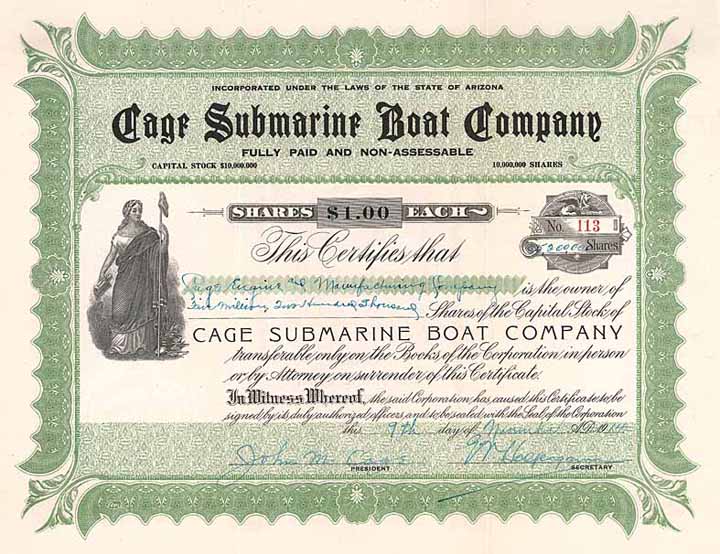 INCORPORATED UNDER THE LAWS OF THE STATE OF ARIZONA
Cage Submarine Boat Company
FULLY PAID AND NON-ASSESSABLE
CAPITAL STOCK $10,000,000 10,000,000 SHARES
SHARES $1.00 EACH
No. 113
5200000 Shares
This Certifies that
Engine & Manufacturing Company is the owner of
Five million, two hundred thousand Shares of the Capital Stock of
CAGE SUBMARINE BOAT COMPANY
transferable only on the Books of the Corporation in person
or by Attorney on surrender of this Certificate.
In Witness Whereof, the said Corporation has caused this Certificate to be
signed by its duly authorized officers and to be sealed with the Seal of the Corporation
this 9th day of November A.D. 19
John M Cage
PRESIDENT SECRETARY